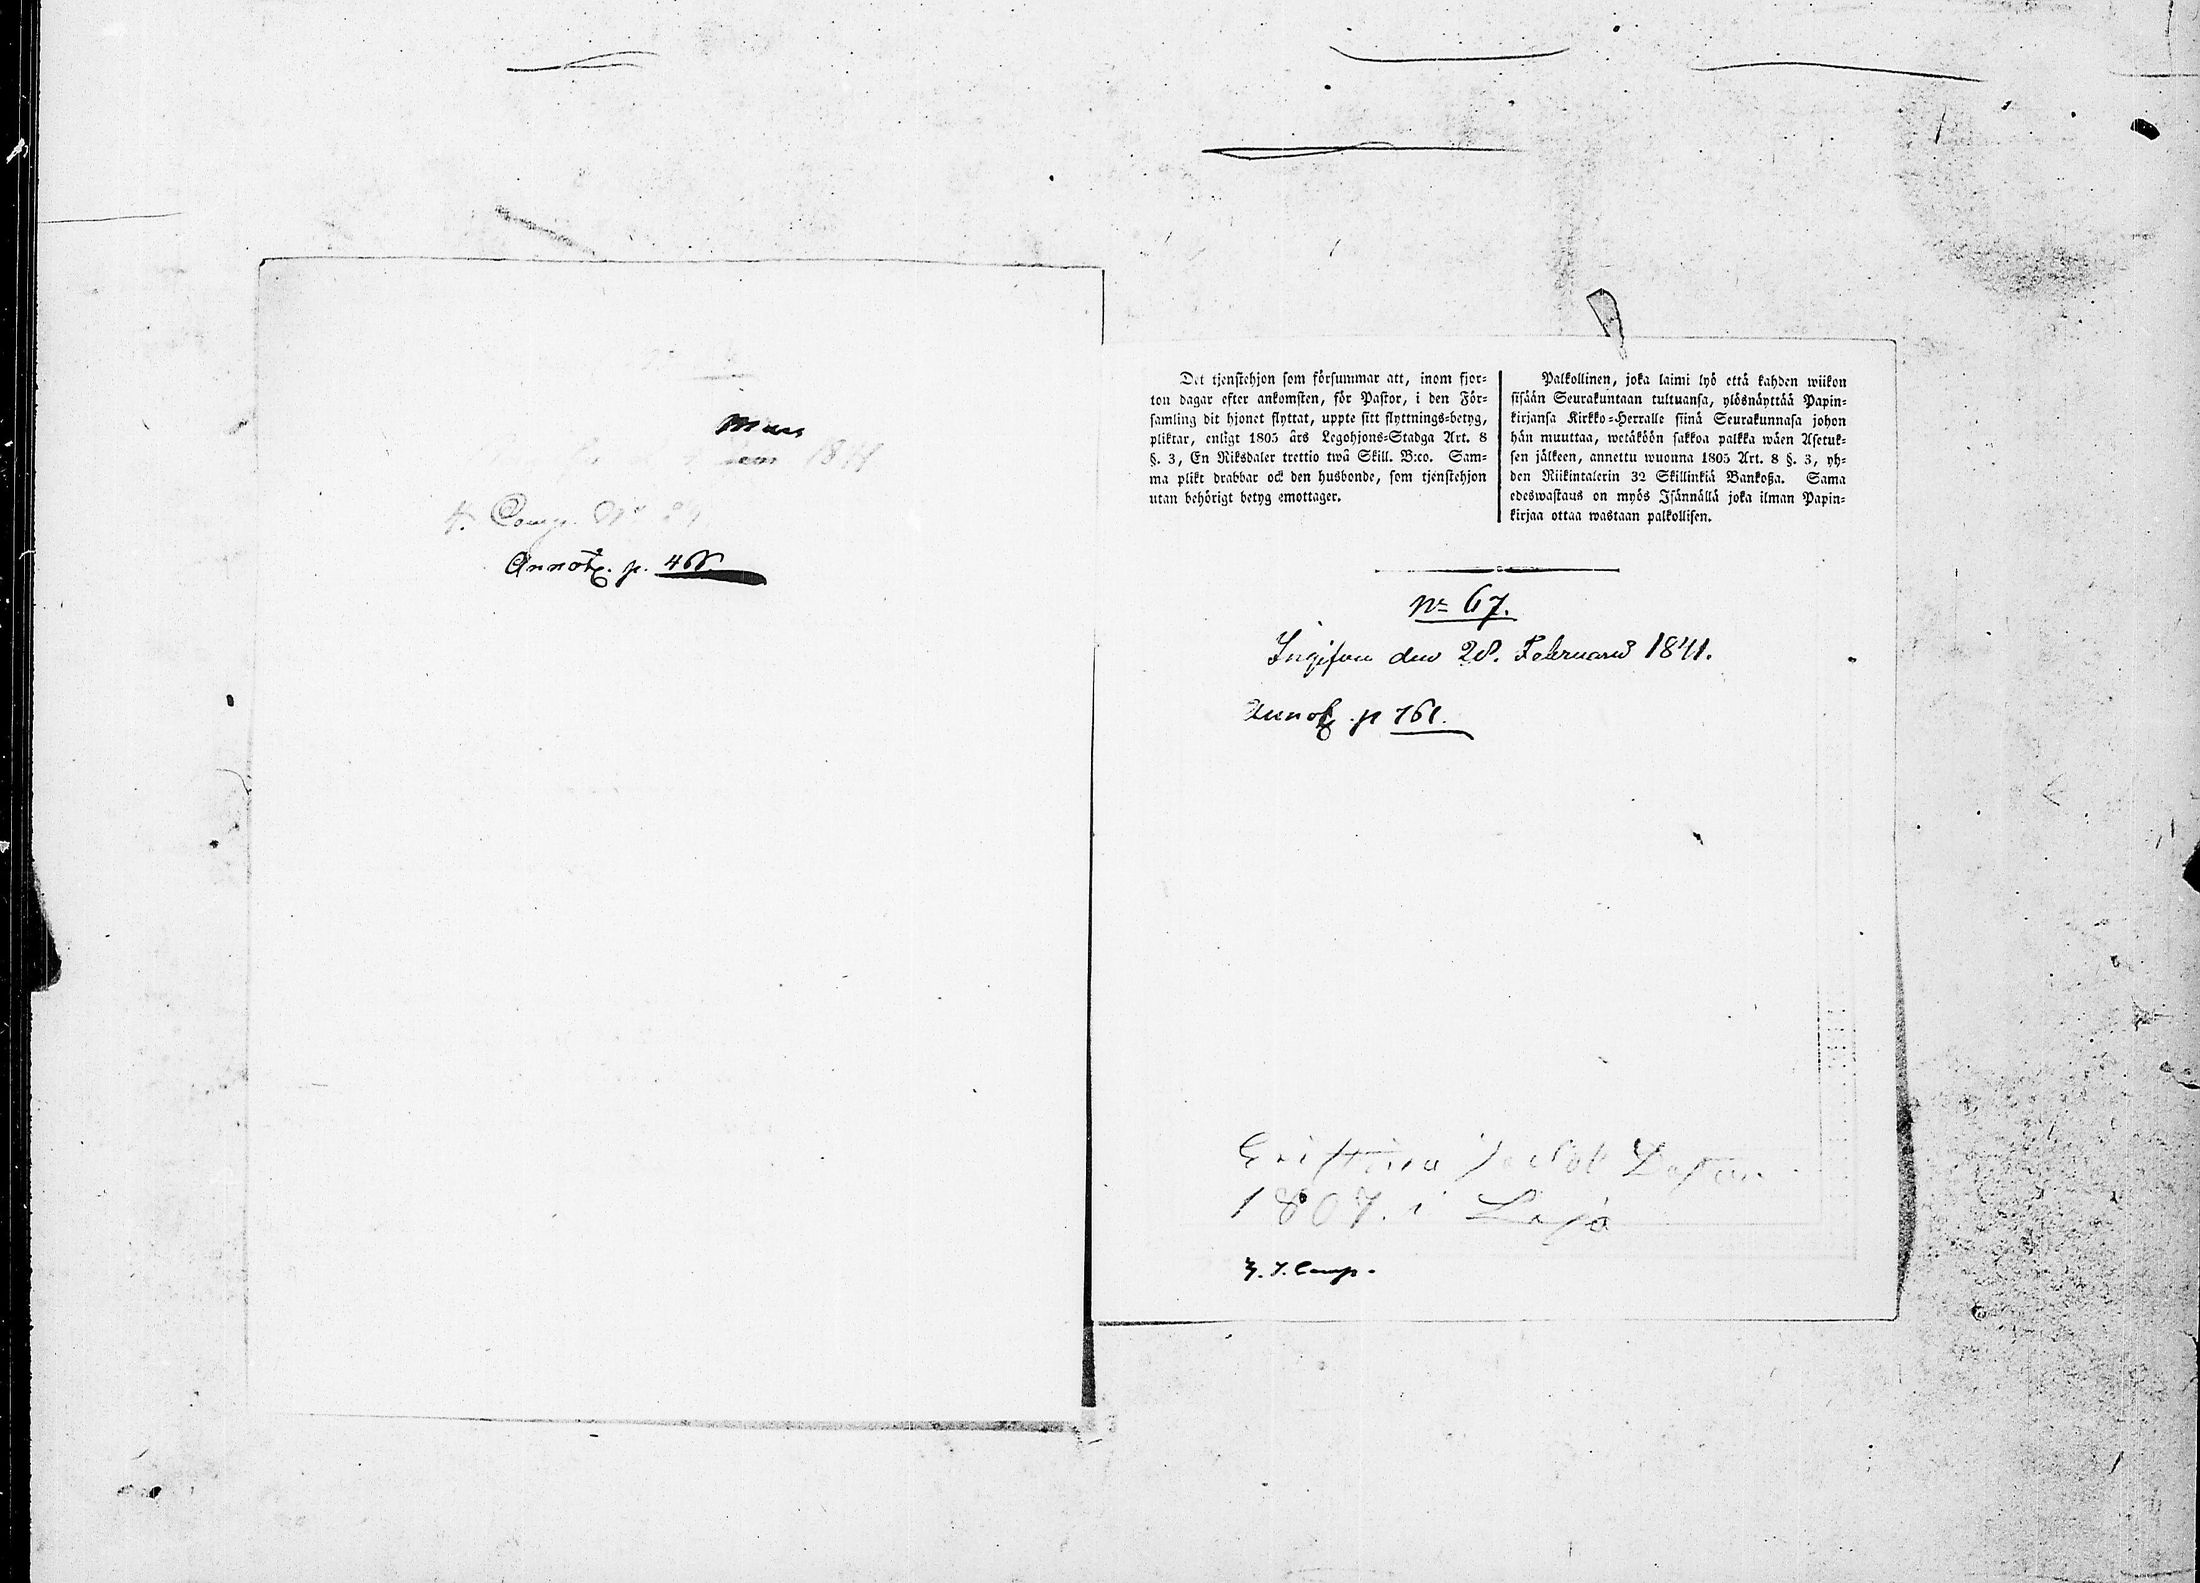 Mars
1841
4. Comp. No 84
Annot. p. 468.
Det tjenstehjon som försummar att, inom fjor-
ton dagar efter ankomsten, för Pastor, i den För-
samling dit hjonet flyttat, uppte sitt flyttnings-betyg,
pliktar, enligt 1805 års Legohjons-Stadga Art. 8
§. 3, En Riksdaler trettio två Skill. B:co. Sam-
ma plikt drabbar ock den husbonde, som tjenstehjon
utan behörigt betyg emottager.
Palkollinen, joka laimi lyö että kahden wiikon
sisään Seurakuntaan tultuansa, ylösnäyttää Papin-
kirjansa Kirkko-Herralle siinä Seurakunnasa johon
hän muuttaa, wetäköön sakkoa palkka wäen Asetuk-
sen jälkeen, annettu wuonna 1805 Art. 8 §. 3, yh-
den Riikintalerin 32 Skillinkiä Bankoßa. Sama
edeswastaus on myös Isännällä joka ilman Papin-
kirjaa ottaa wastaan palkollisen.
No 67.
Ingifven den 28. Februarii 1841.
Annot. p 761.
Cristina Jacob
1807. i Lajo
4. Comp.